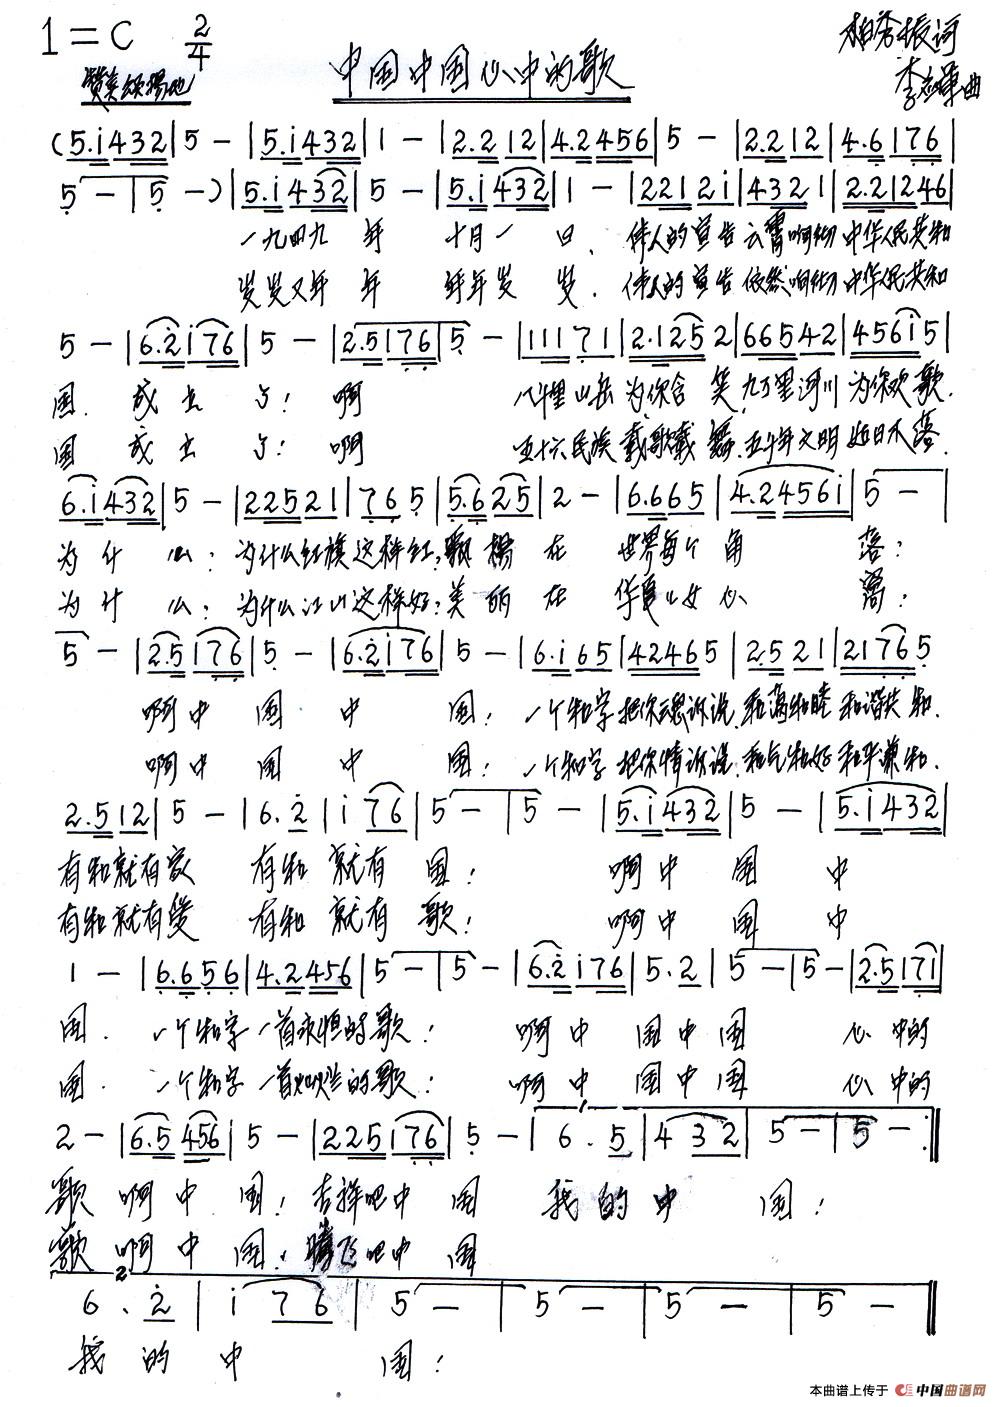 1=C 2/4
中国中国心中的歌
柏秀振词
赞美颂扬地
曲
(5.i432|5 -|5.i432|1 -|2.2 12|4.2456|5 -|2.212|4.6176|
5 -|5 -)|5.i432|5 -|5.i432|1 -|2212i|4321|2.21246|
一九四九 年 十月一 日、伟人的宣告云霄响彻中华人民共和
岁岁又年 年 年年岁 岁、伟人的宣告依然响彻中华人民共和
5 -|6.2i76|5 -|2.5176|5 -|11171|2.1252|66542|456i5|
国. 成立 了!啊 八千里山岳为你含 笑,九万里河川为你欢歌.
国 成立 了!啊 五十六民族载歌载 舞.五千年文明 日不落.
6.i432|5 -|22521|765|5.625|2 -|6.665|4.2456i|5 -|
为什 么:为什么红旗这样红:飘扬 在 世界每个 角 落?
为什 么:为什么江山这样好:美丽 在 华夏儿女 心 窝?
5 -|2.5176|5 -|6.2i76|5 -|6.i65|42465|2.521|21765
啊中 国 中 国:一个和字把你魂诉说.和满和睦和谐共和.
啊中 国 中 国:一个和字把你情诉说.和气和好和平兼和.
2.512|5 -|6.2|i76|5 -|5 -|5.i432|5 -|5.i432|
有和就有家 有和 就有 国: 啊中 国 中
有和就有爱 有和 就有 歌: 啊中 国 中
1 -|6.656|4.2456|5 -|5 -|6.2i76|5.2|5 -|5 -|2.5171|
国. 一个和字一首永恒的歌: 啊中 国中国 心中的
国. 一个和字一首 的歌: 啊中 国中国 心中的
2 -|6.5456|5 -|225i76|5 -|6.5|432|5 -|5 -:‖
歌 啊中 国:吉祥吧中 国 我的中 国:
歌 啊中 国.腾飞吧中 国
6.2|i76|5 -|5 -|5 -|5 -‖
我 的 中 国:
本曲谱上传于 中国曲谱网